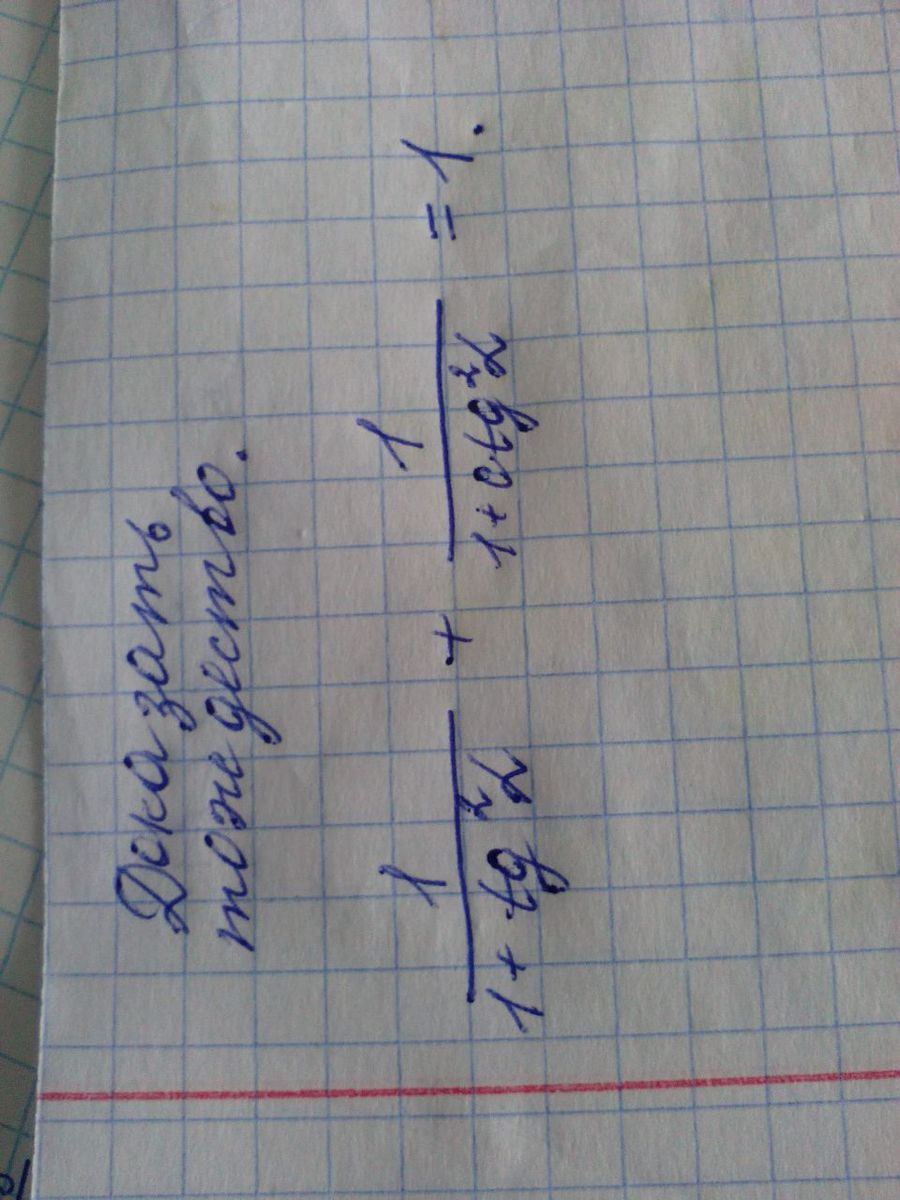 Доказать
тождество.
1/(1 + tg²α) + 1/(1 + ctg²α) = 1.